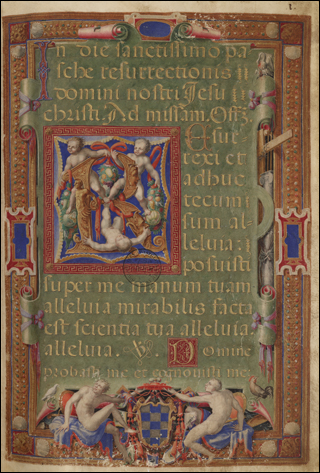 1.
In die sanctissimo pa
sche resurrectionis
domini nostri Jesu
christi. Ad missam.
R Esur
rexi et
adhuc
tecum
sum al-
leluia:
posuisti
super me manum tuam
alleluia mirabilis facta
est scientia tua alleluia.
alleluia. V. Domine
probasti me et cognovisti me